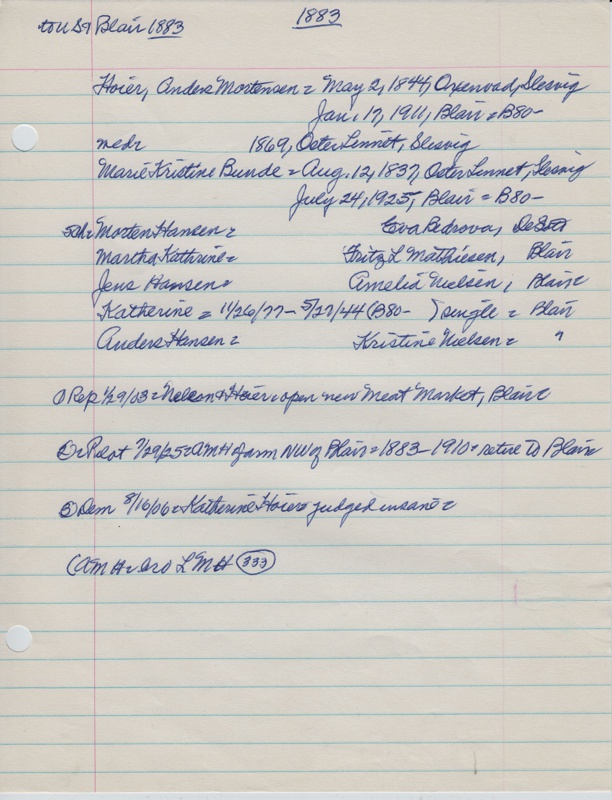 to US & Blair 1883
1883
Hoier, Anders Mortensen = May 2, 1844, Oxenvad, Slesvig
Jan. 17, 1911, Blair = B80-
medr 1869, Oster Lennet, Slesvig
Marie Kristine Bunde = Aug. 12, 1837, Oster Lennet, Slesvig
July 24, 1925, Blair = B80-
5ch = Morten Hansen = Eva Pedrova,
Martha Kathrine = Fritz L Mathiesen, Blair
Jens Hansen = Amelia Nielsen, Blair
Katherine = 11/26/77 - 5/27/44 (B80- ) single = Blair
Anders Hansen = Kristine Nielsen = "
1) Rep 1/29/03 = Nelson & Hoier = open new Meat Market, Blair =
2) = Pilot 7/29/25 = AMH = farm NW of Blair = 1883-1910 = retire to Blair
3) Dem 8/16/06 = Katherine Hoier = judged insane =
(AMH = bro LMH 333